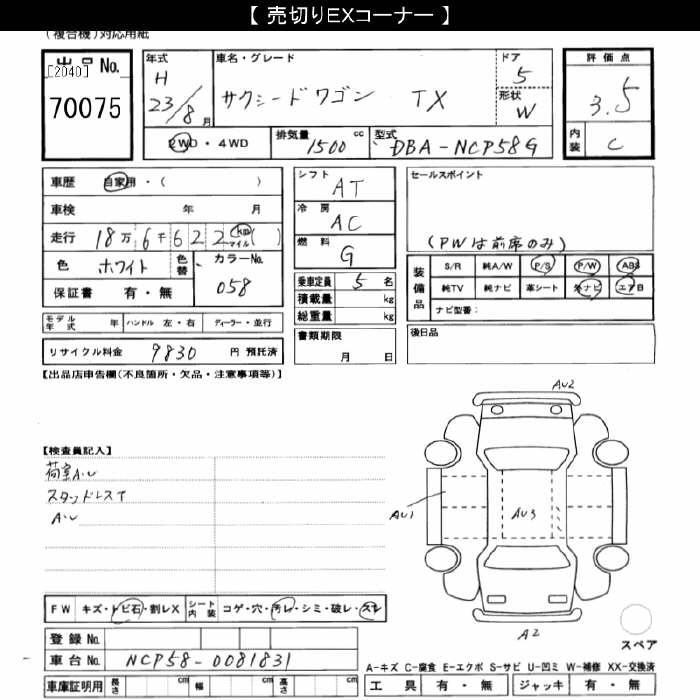 【 売切りEXコーナー 】
(複合機)対応用紙
出品 No.
[2040]
70075
年式
H
23/8 月
車名・グレード
サクシードワゴン TX
ドア
5
形状
W
評価点
3.5
内装
C
2WD・4WD
排気量
1500 cc
型式
DBA-NCP58G
車歴 自家用・( )
車検 年 月
走行 18万6千622 km マイル ( )
色 ホワイト
色替
カラーNo.
058
保証書 有・無
シフト
AT
冷房
AC
燃料
G
乗車定員 5 名
積載量 kg
総重量 kg
書類期限
月 日
セールスポイント
(PWは前席のみ)
装備品
S/R 純A/W P/S P/W ABS
純TV 純ナビ 革シート 外ナビ エアB
ナビ型番:
後日品
モデル年式 年 ハンドル 左・右 ディーラー・並行
リサイクル料金 9830 円 預託済
【出品店申告欄(不良箇所・欠品・注意事項等)】
【検査員記入】
荷室A・U
スタッドレスT
A・U
AU2
AU1
AU3
A2
スペア
FW キズ・トビ石・割レX
シート内装 コゲ・穴・汚レ・シミ・破レ・スレ
登録 No.
車台 No. NCP58-0081831
車庫証明用 長さ cm 幅 cm 高さ cm
A-キズ C-腐食 E-エクボ S-サビ U-凹ミ W-補修 XX-交換済
工具 有・無 ジャッキ 有・無